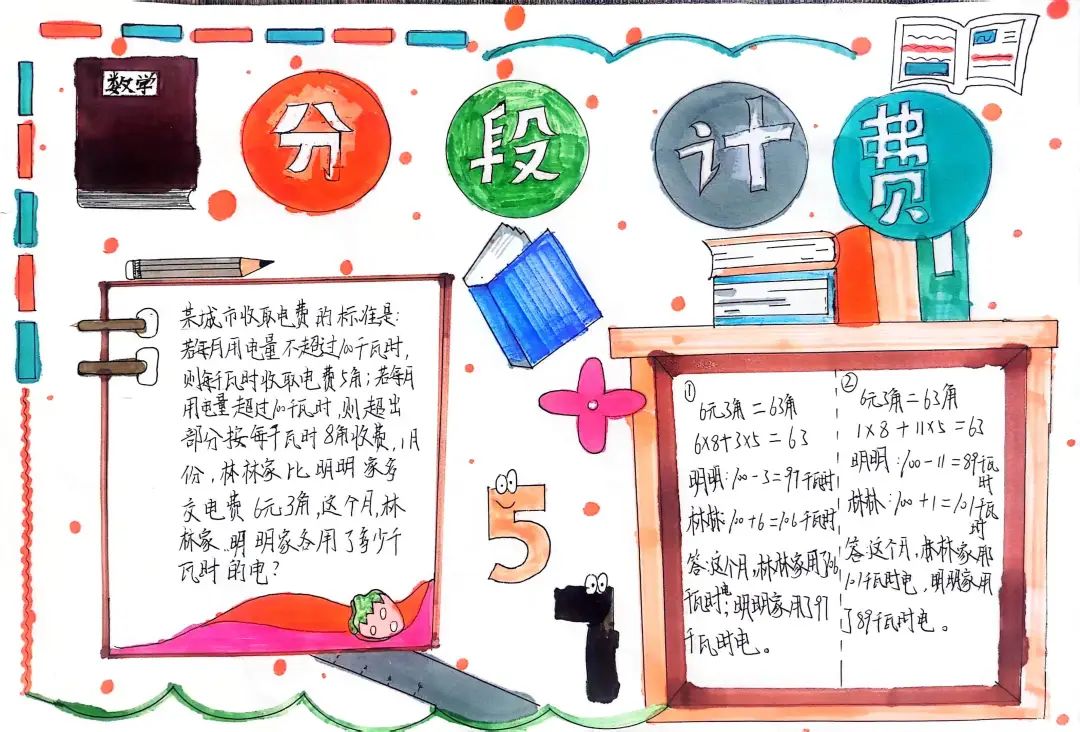 数学
分段计费
某城市收取电费的标准是:
若每月用电量不超过100千瓦时,
则每千瓦时收取电费5角;若每月
用电量超过100千瓦时,则超出
部分按每千瓦时8角收费,1月
份,林林家比明明家多
交电费6元3角,这个月,林
林家、明明家各用了多少千
瓦时的电?
5
1
①
6元3角=63角
6×8+3×5=63
明明:100-3=97千瓦时
林林:100+6=106千瓦时
答:这个月,林林家用了106
千瓦时电;明明家用了97
千瓦时电。
②
6元3角=63角
1×8+11×5=63
明明:100-11=89千瓦时
林林:100+1=101千瓦时
答:这个月,林林家用
101千瓦时电,明明家用
了89千瓦时电。